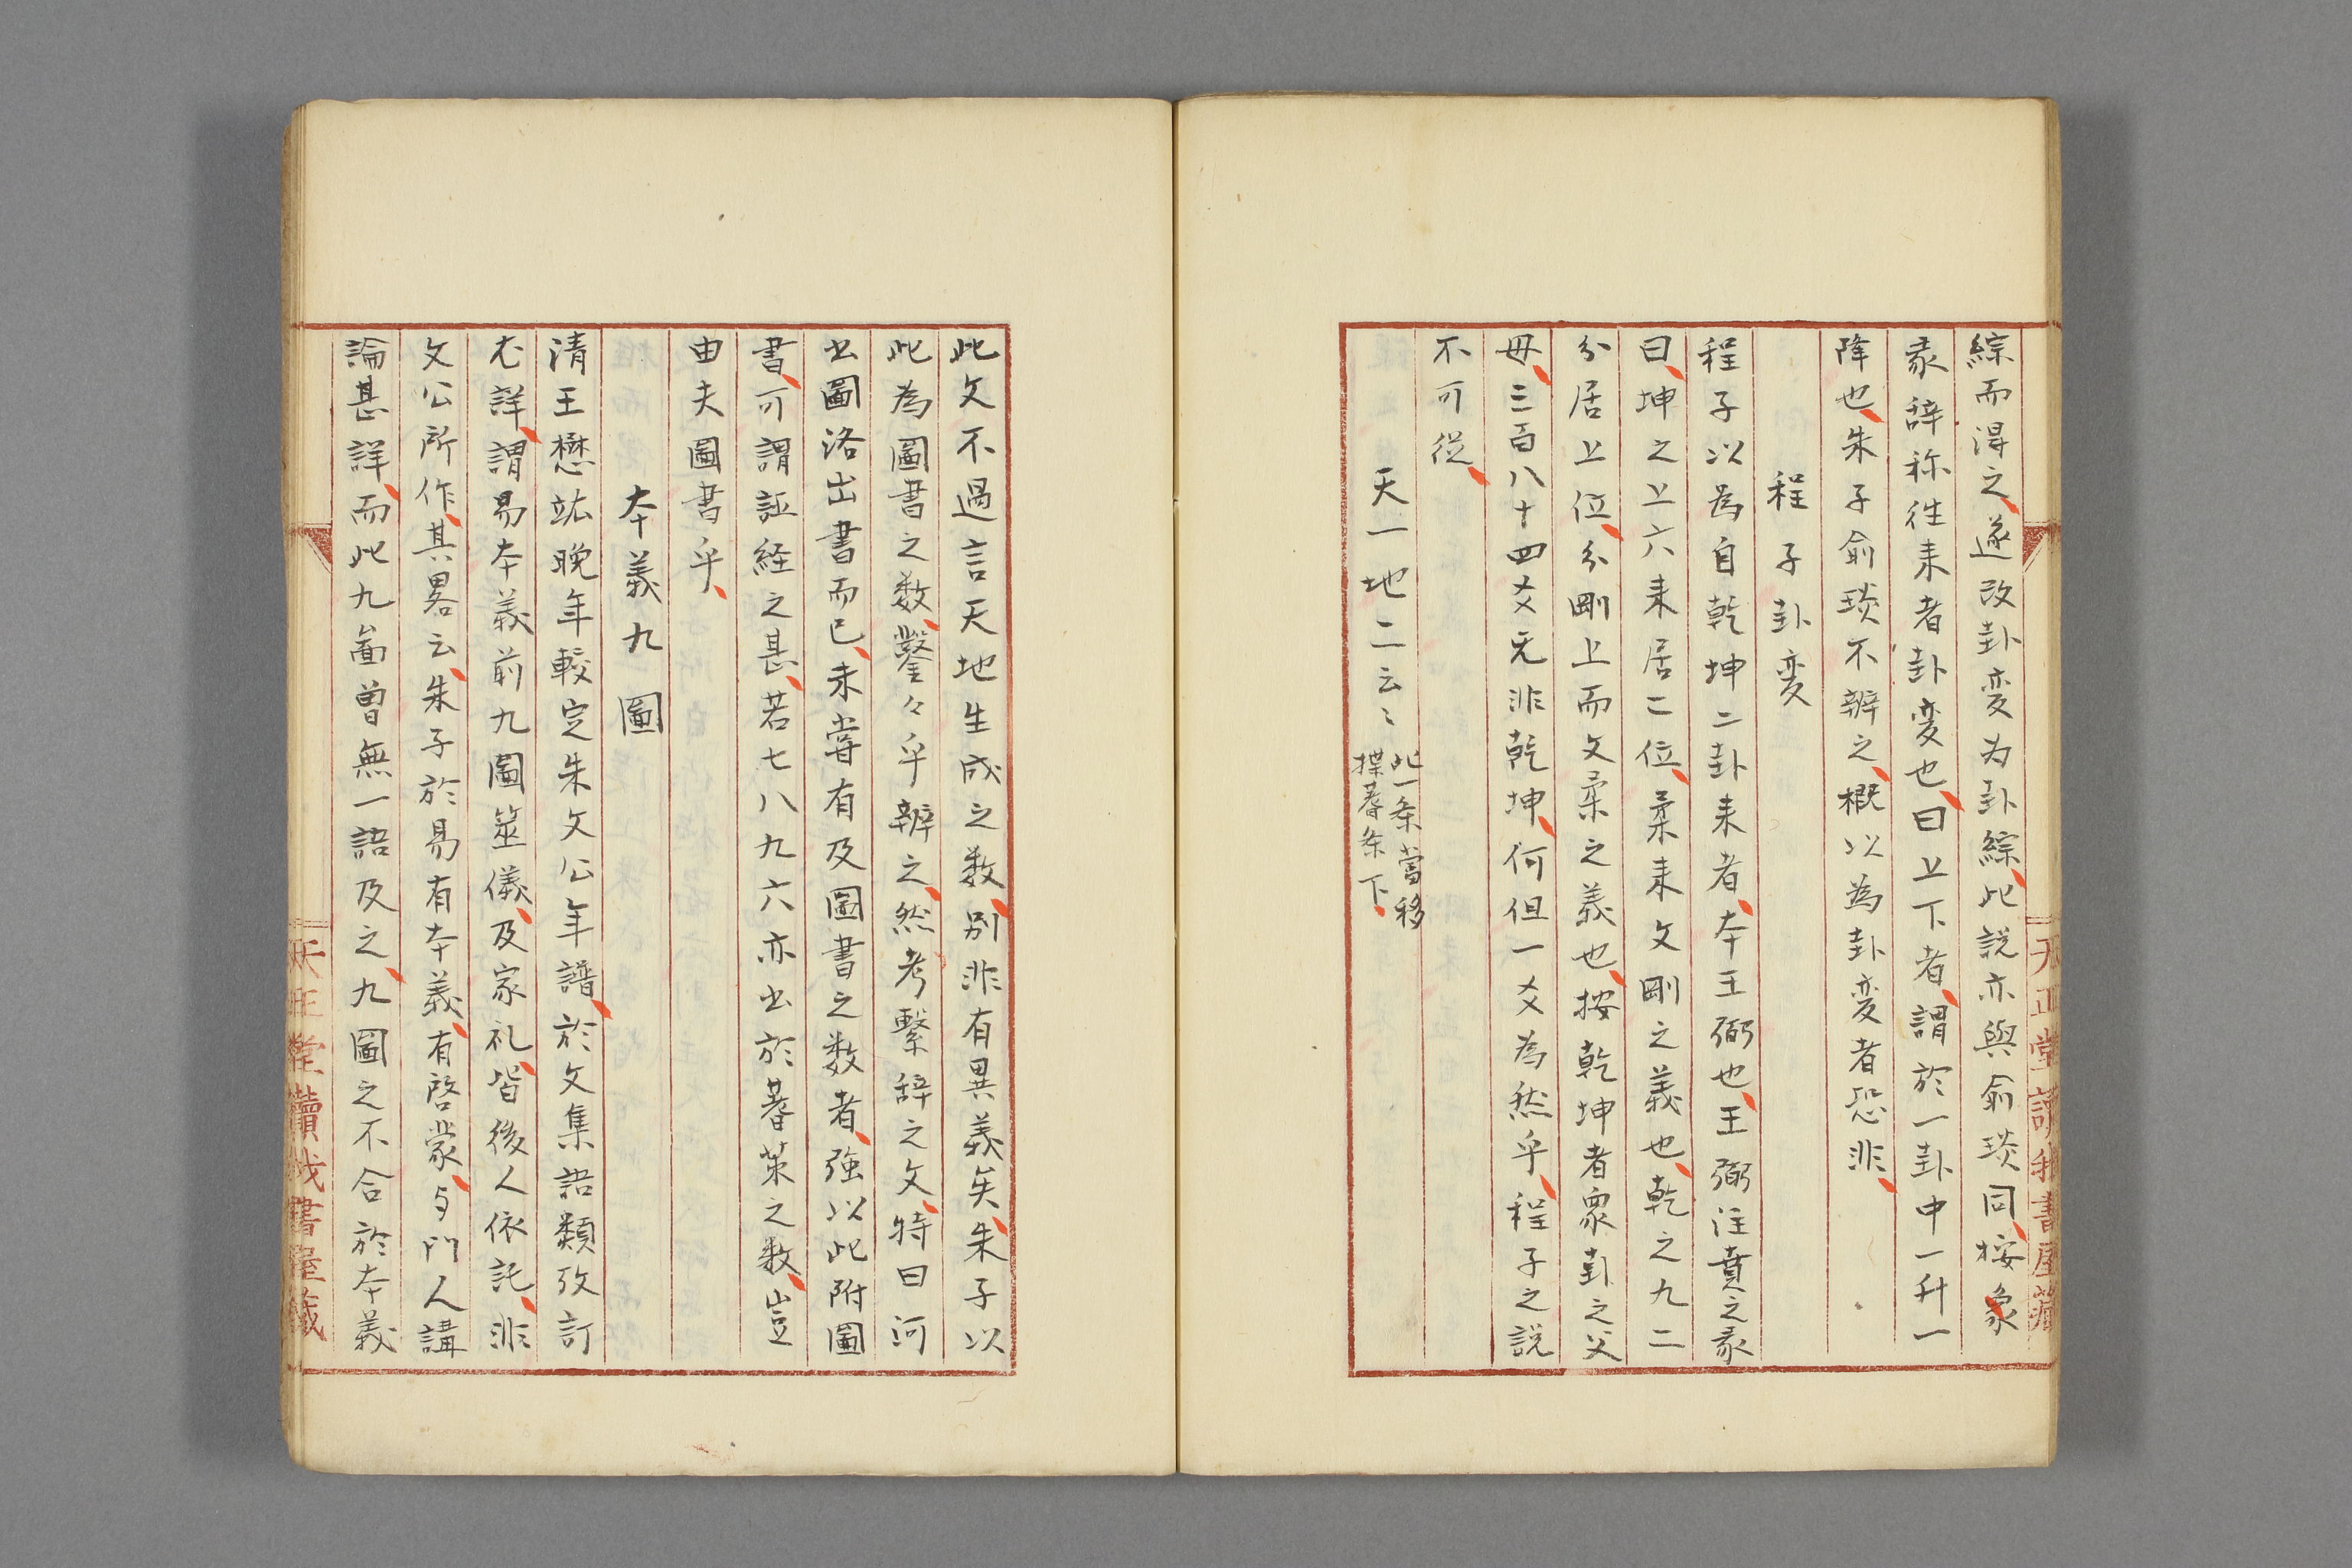 綜而得之、遂改卦変为卦綜、此説亦與俞琰同、按象
彖辞称徃耒者卦変也、曰上下者、謂於一卦中一升一
降也、朱子俞琰不辨之、概以為卦変者恐非、
程子卦変
程子以為自乾坤二卦耒者、本王弼也、王弼注賁之彖
曰、坤之上六耒居二位、柔耒文剛之義也、乾之九二
分居上位、分剛上而文柔之義也、按乾坤者衆卦之父
母、三百八十四爻无非乾坤、何但一爻為然乎、程子之説
不可従、
天一地二云々
此一条當移
揲蓍条下、
此文不過言天地生成之数、別非有異義矣、朱子以
此為圖書之数、鑿々乎辨之、然考繫辞之文、特曰河
出圖洛出書而已、未甞有及圖書之数者、強以此附圖
書、可謂誣経之甚、若七八九六亦出於蓍策之数、豈
由夫圖書乎、
本義九圖
清王懋竑晚年較定朱文公年譜、於文集語類攷訂
尤詳、謂易本義前九圖筮儀、及家礼、皆後人依託、非
文公所作、其畧云、朱子於易有本義、有啓蒙、与門人講
論甚詳、而此九啚曽無一語及之、九圖之不合於本義
天正堂讀我書屋藏
天正堂讀我書屋藏